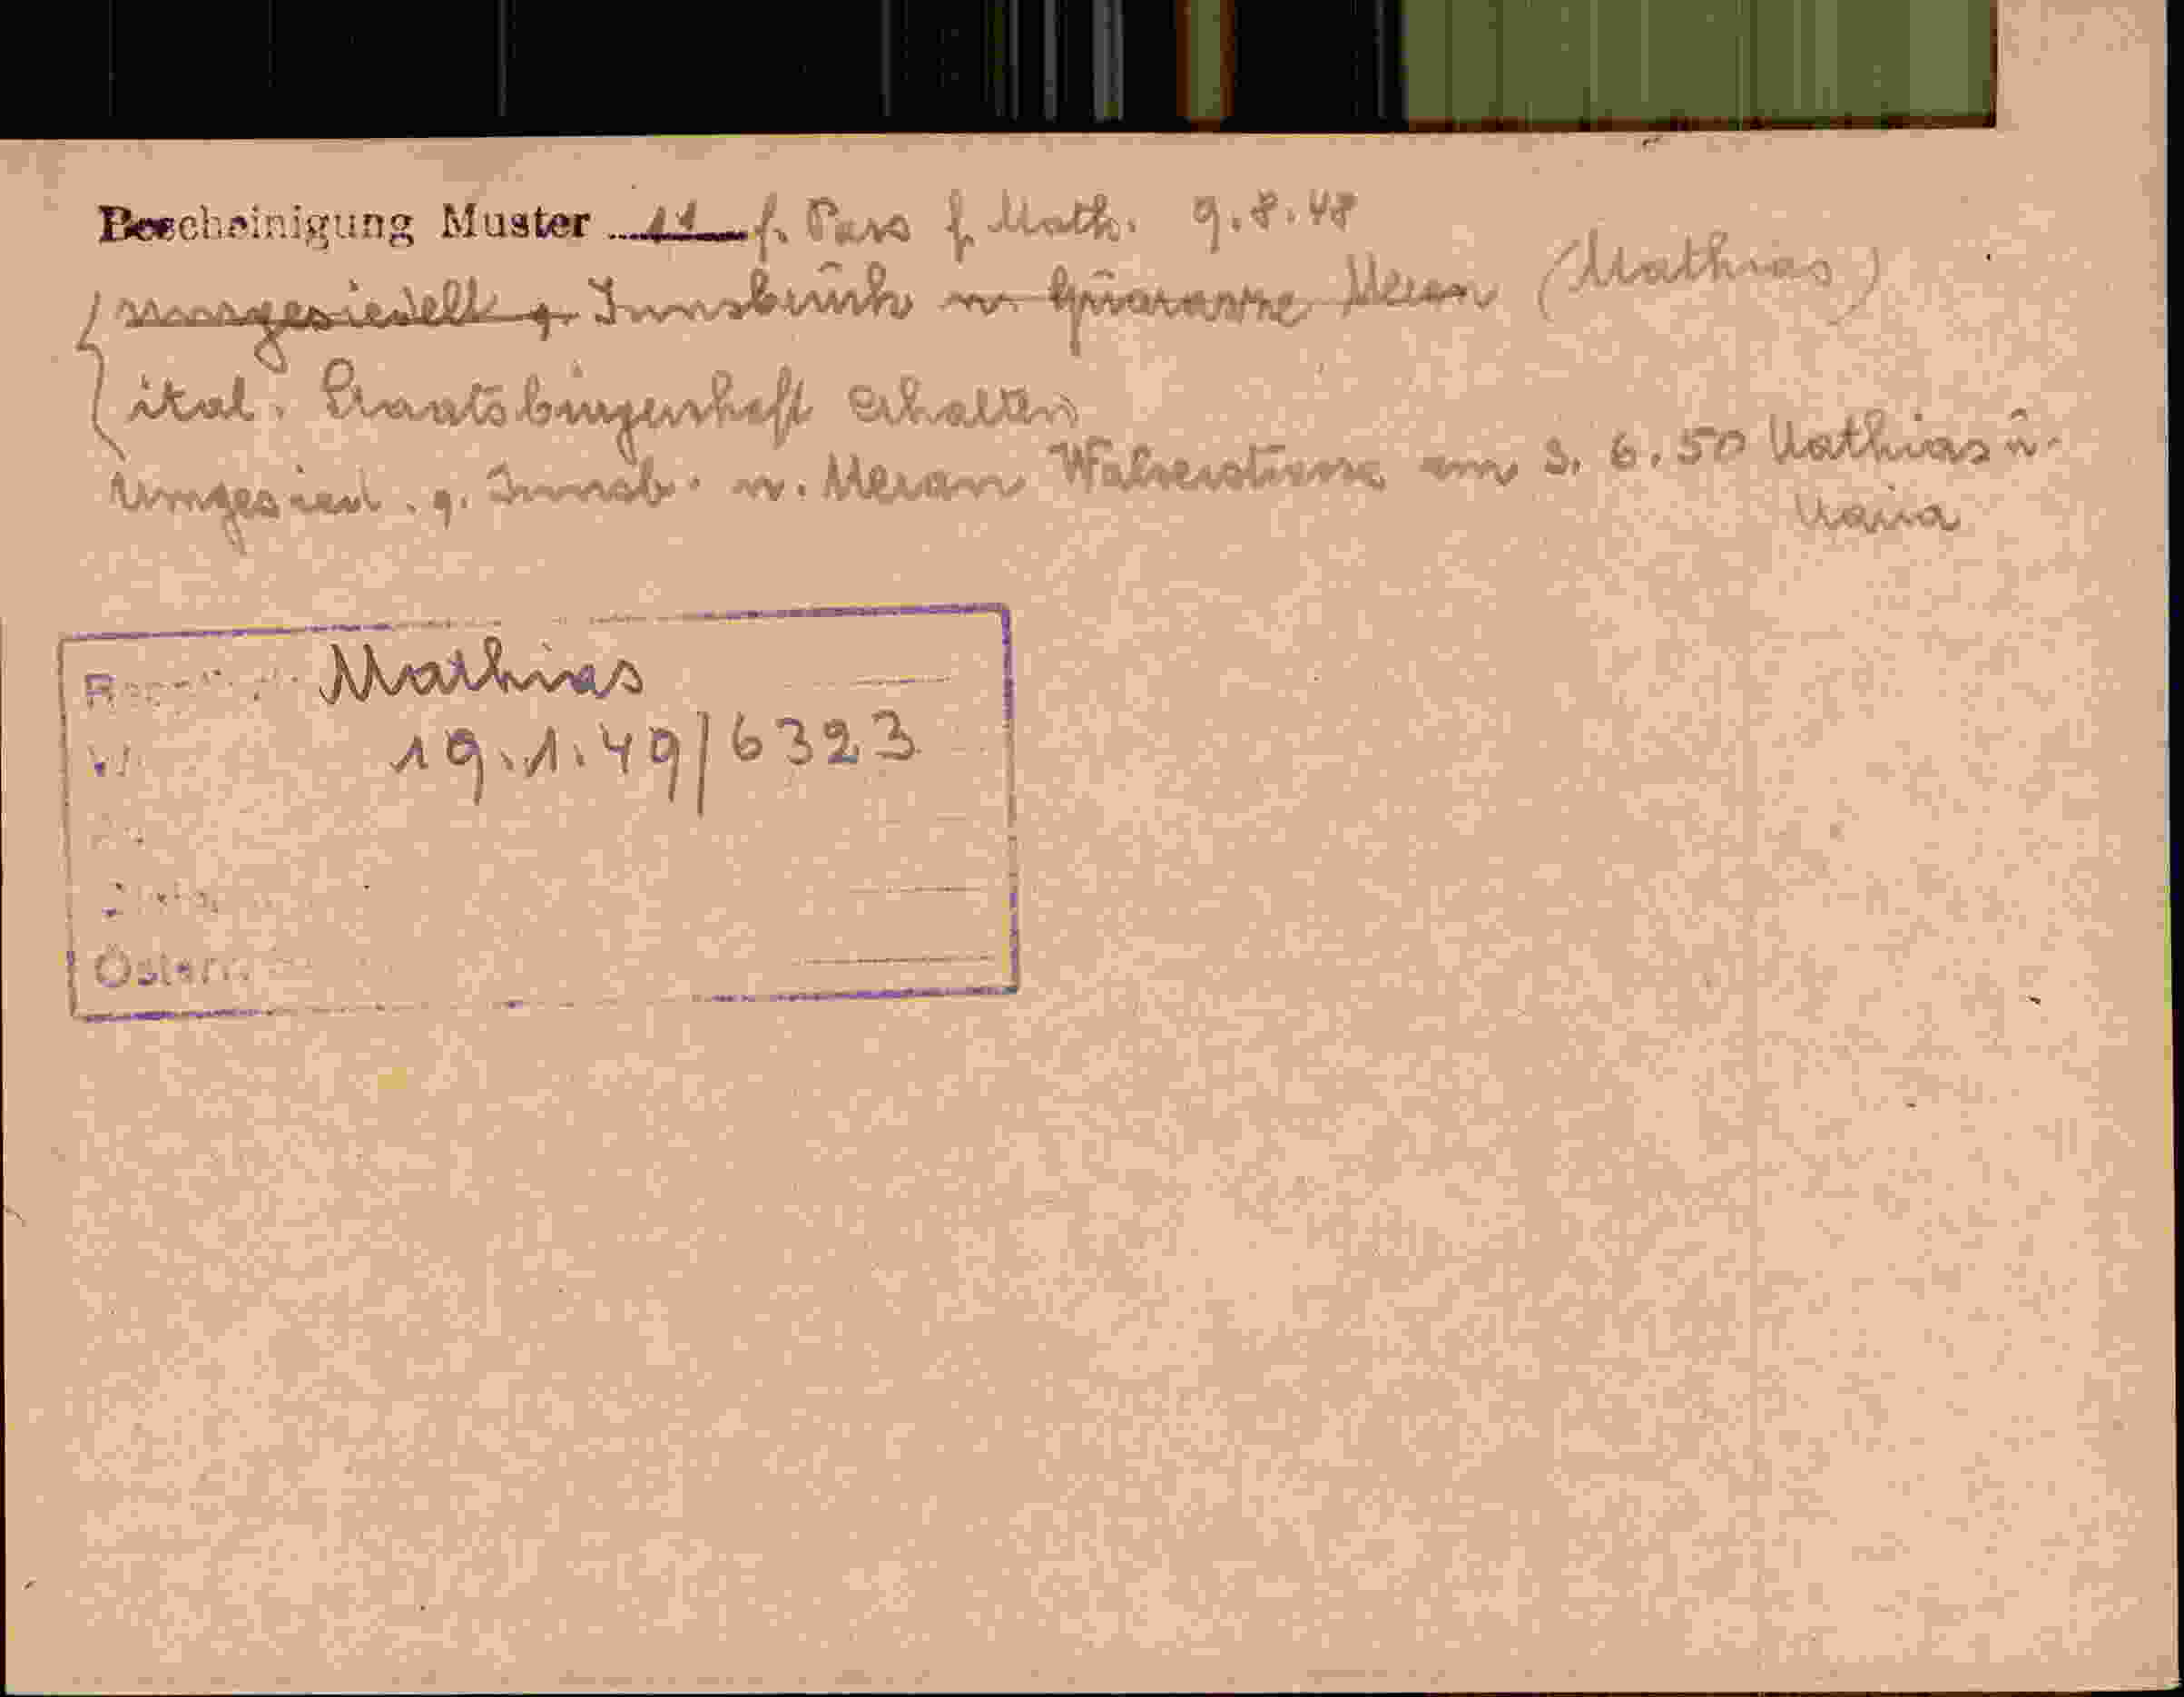 Bescheinigung Muster 11 f. Pass f. Math. 9.8.48
umgesiedelt g. Innsbruck n. Meran (Mathias)
ital. Staatsbürgerschaft erhalten
Umgesied. g. Innsb. n. Meran am 3.6.50 Mathias u.
Maria
Mathias
19.1.49/6323